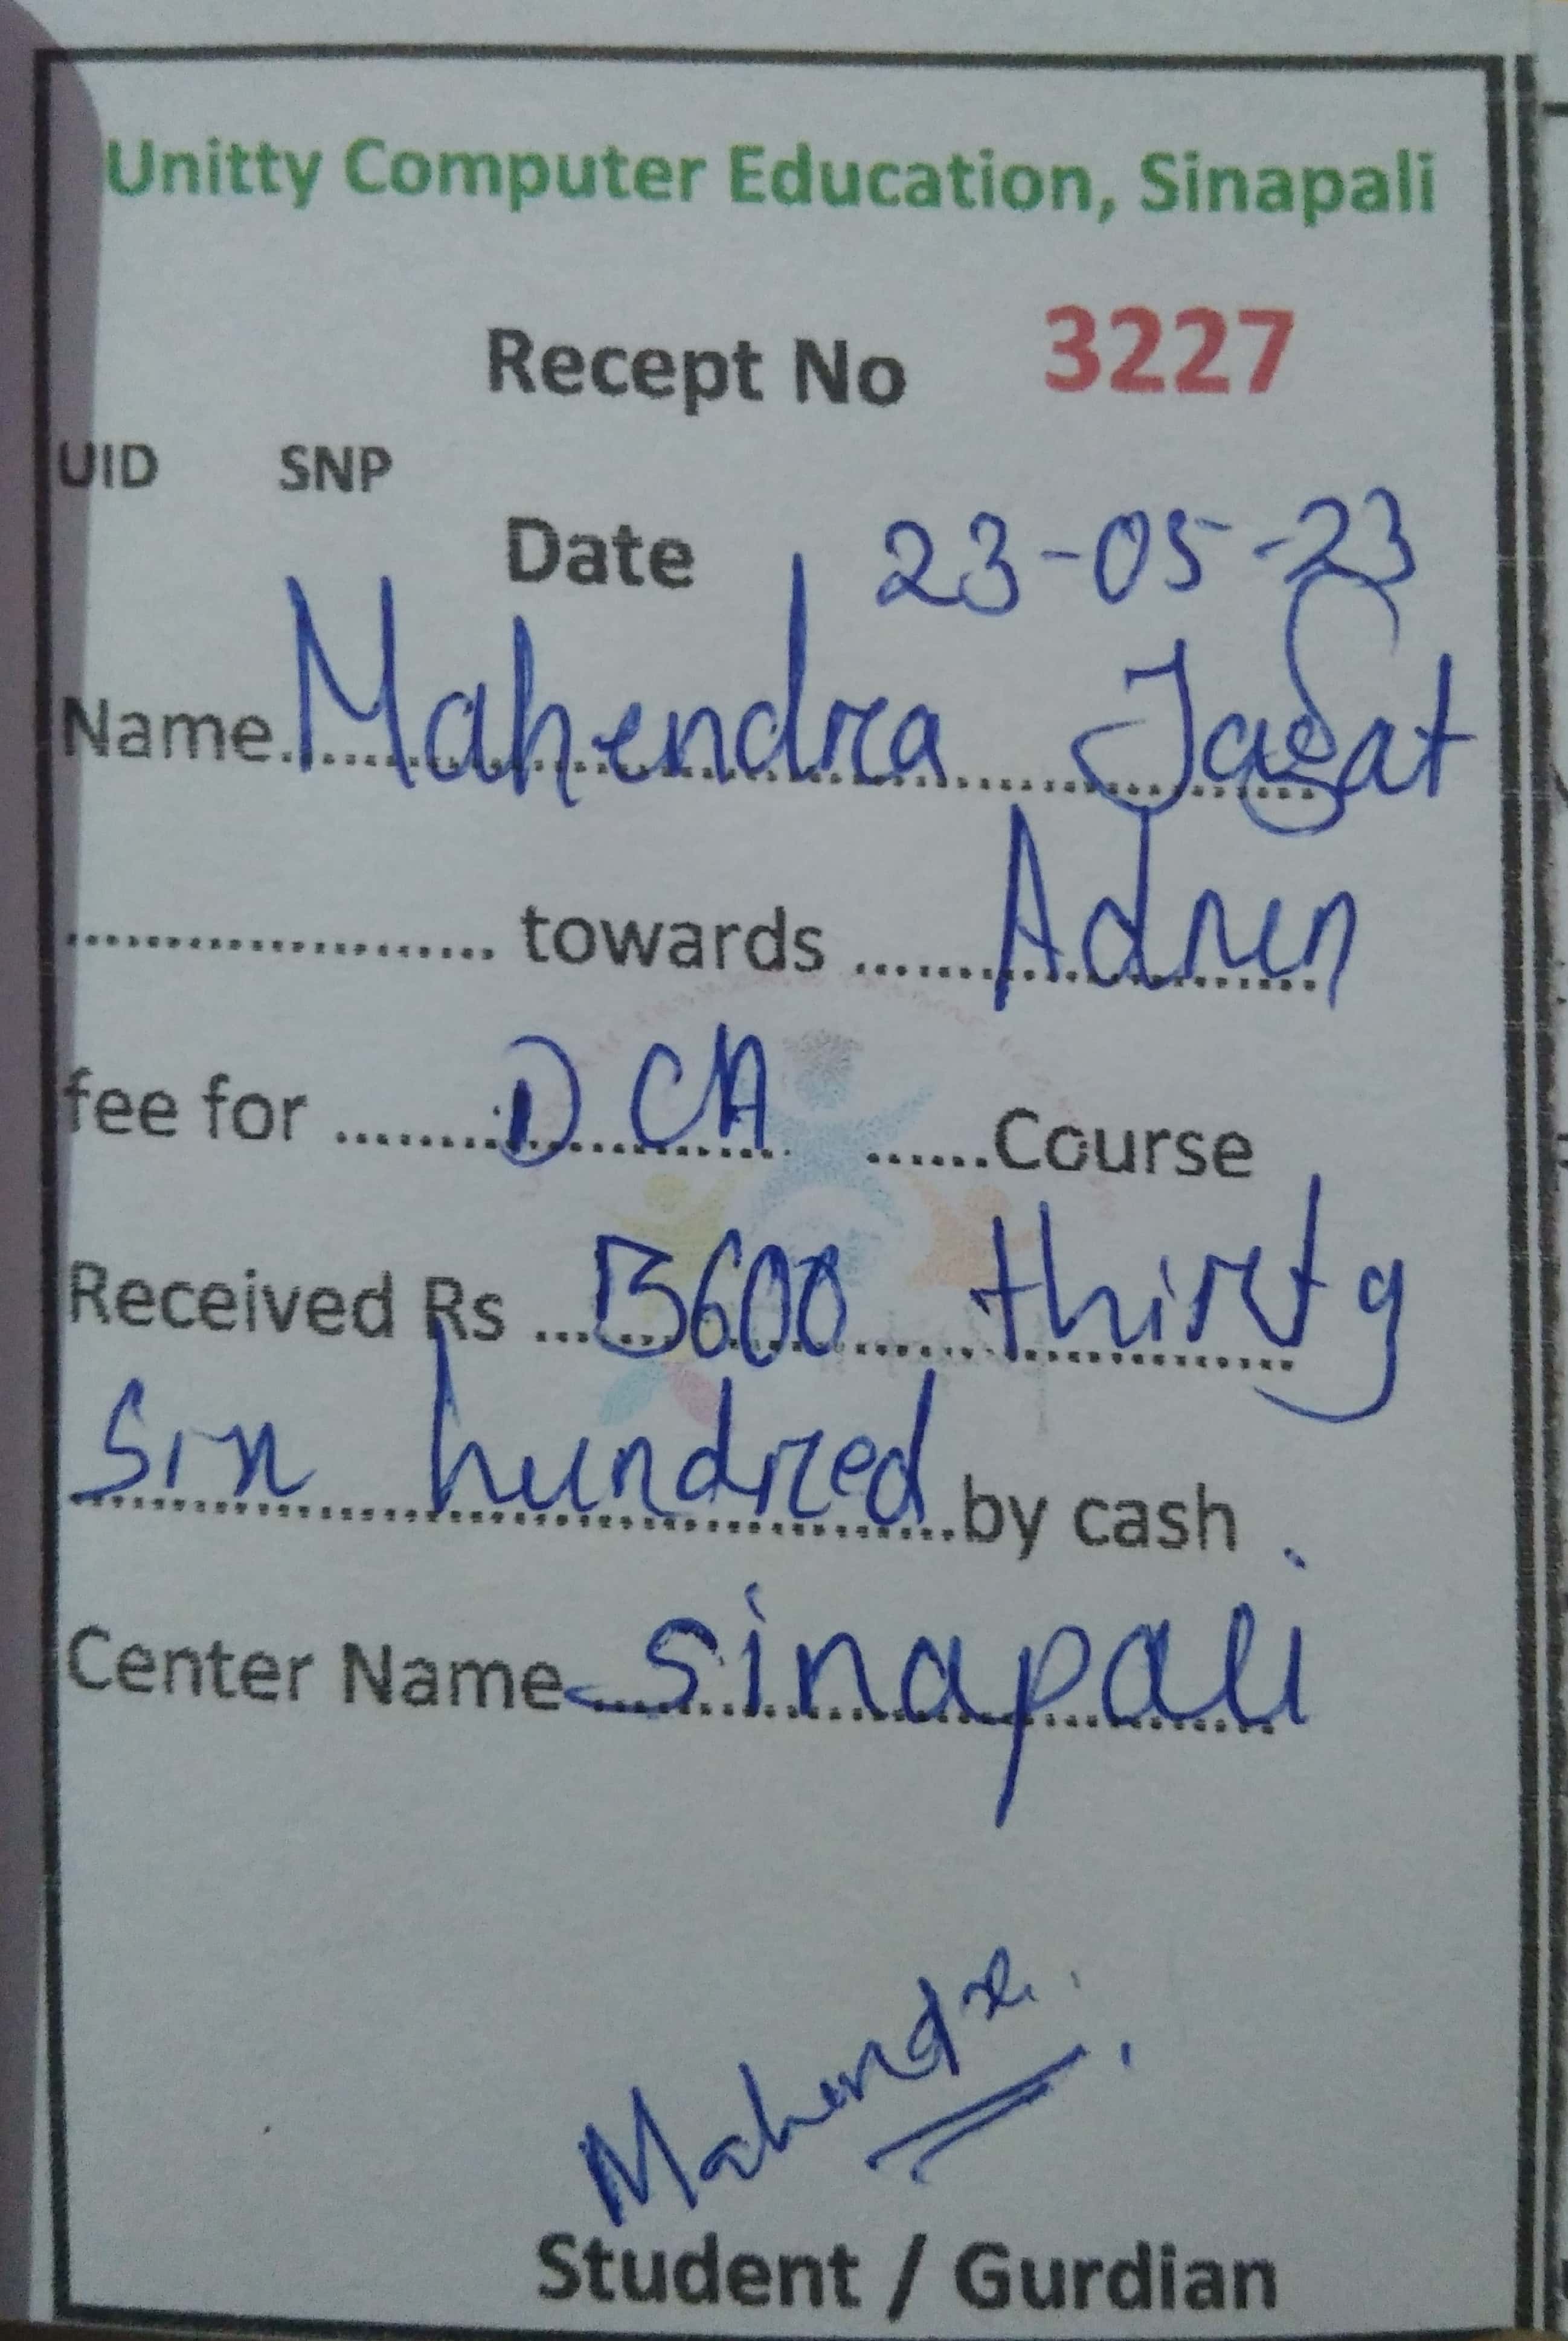 Unitty Computer Education, Sinapali
Recept No 3227
UID SNP
Date 23-05-23
Name Mahendra Jagat
towards Admn
fee for DCA Course
Received Rs 3600 thirty
Six hundred by cash
Center Name Sinapali
Mahendra
Student / Gurdian